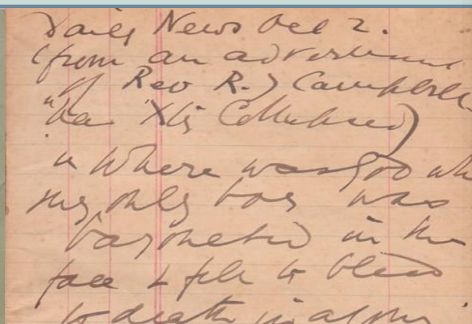 Daily News Dec 2.
(from an advertisement
of Rev R. J Campbell
"has Xty Collapsed)
"Where was God wh
my only boy was
bayoneted in the
face & fell to bleed
to death in agony